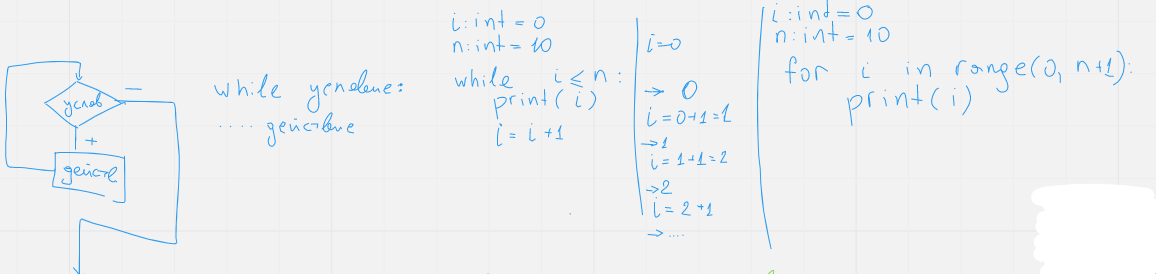 услов
—
+
действ
while условие:
.... действие
i: int = 0
n: int = 10
while i ≤ n:
print(i)
i = i + 1
i=0
→ 0
i = 0+1=1
→1
i = 1+1=2
→2
i = 2+1
→....
i: int = 0
n: int = 10
for i in range(0, n+1):
print(i)